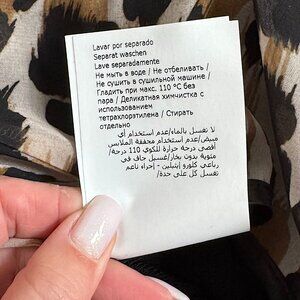 Lavar por separado
Separat waschen
Lave separadamente
Не мыть в воде / Не отбеливать /
Не сушить в сушильной машине /
Гладить при макс. 110 °C без
пара / Деликатная химчистка с
использованием
тетрахлорэтилена / Стирать
отдельно
لا تغسل بالماء/عدم استخدام أي
مبيض/عدم استخدام مجففة الملابس
أقصى درجة حرارة للكوي 110 درجة/
مئوية بدون بخار/غسيل جاف في
رباعي كلورو إيثيلين - إجراء ناعم
تغسل كل على حدة/